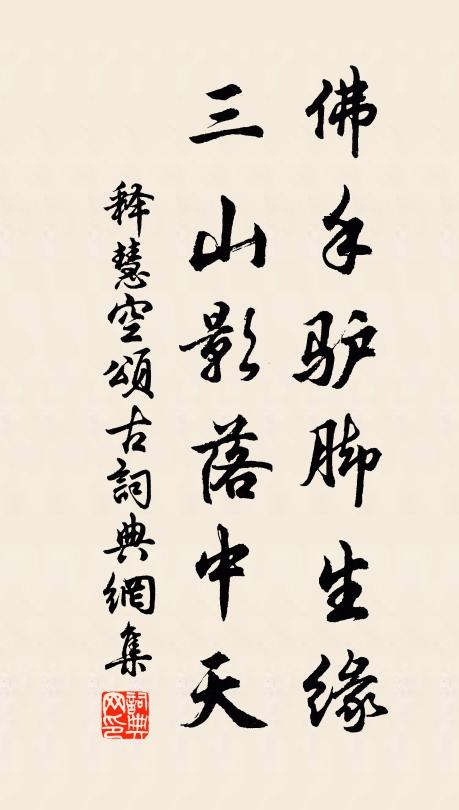 佛手驴脚生缘
三山影落中天
释慧空頌古詞典網集
詞典网印